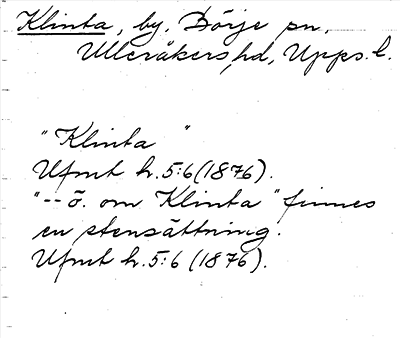 Klinta, by, Börje sn,
Ulleråkers hd, Upps. l.
"Klinta"
Ufmt h. 5:6 (1876).
"-- ö. om Klinta" finnes
en stensättning.
Ufmt h. 5:6 (1876).